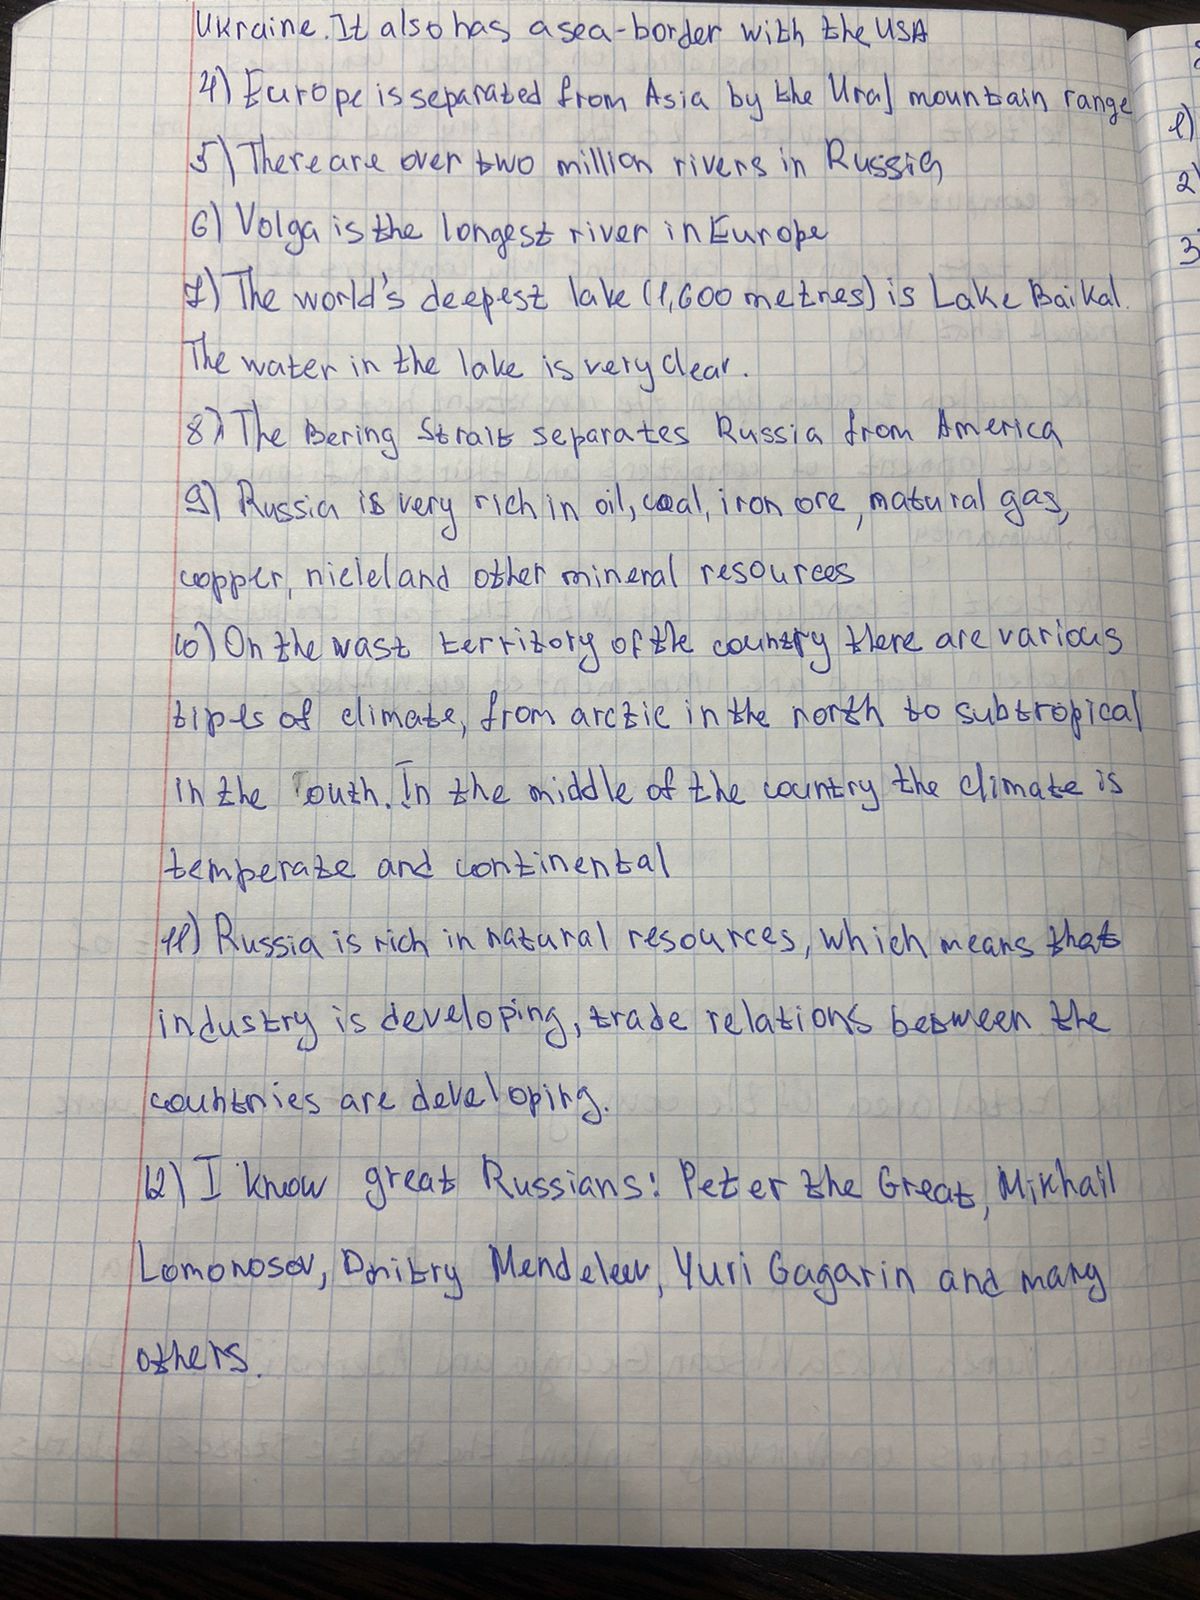 Ukraine. It also has a sea-border with the USA
4) Europe is separated from Asia by the Ural mountain range
5) There are over two million rivers in Russia
6) Volga is the longest river in Europe
7) The world's deepest lake (1,600 metres) is Lake Baikal.
The water in the lake is very clear.
8) The Bering Strait separates Russia from America
9) Russia is very rich in oil, coal, iron ore, natural gas,
copper, nickel and other mineral resources
10) On the wast territory of the country there are various
tipes of climate, from arctic in the north to subtropical
in the south. In the middle of the country the climate is
temperate and continental
11) Russia is rich in natural resources, which means that
industry is developing, trade relations between the
countries are developing.
12) I know great Russians: Peter the Great, Mikhail
Lomonosov, Dmitry Mendeleev, Yuri Gagarin and many
others.
1)
2)
3